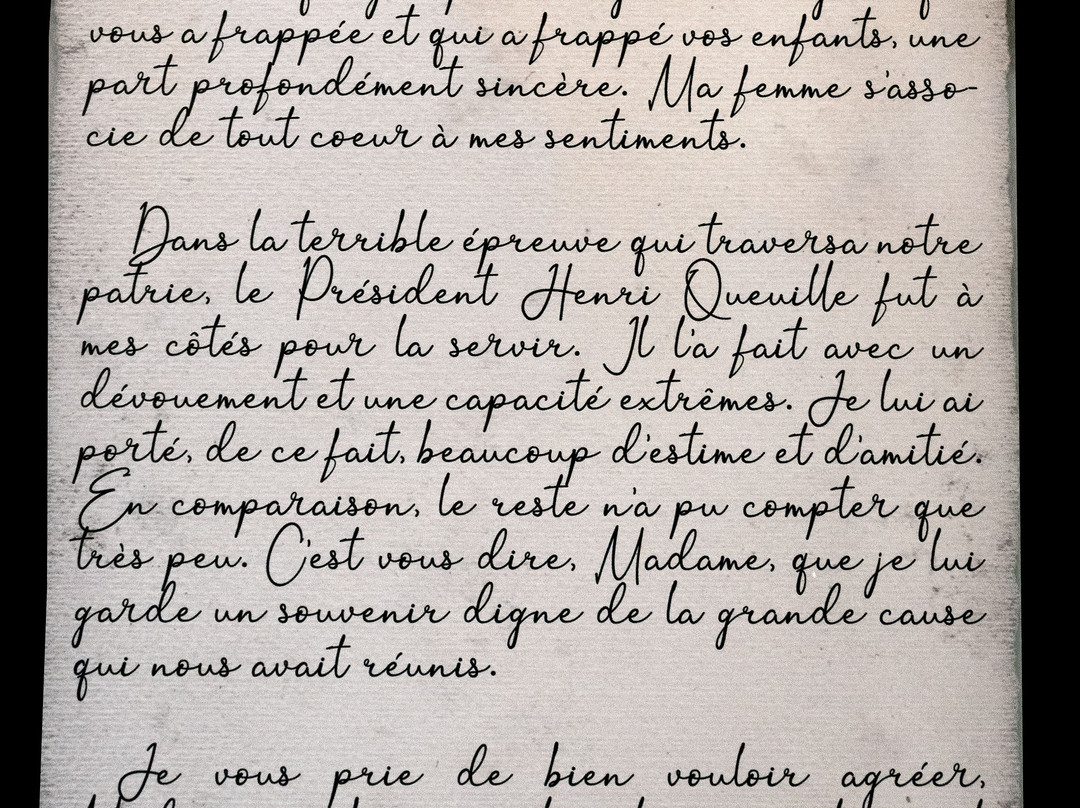 vous a frappée et qui a frappé vos enfants, une
part profondément sincère. Ma femme s'asso-
cie de tout coeur à mes sentiments.
Dans la terrible épreuve qui traversa notre
patrie, le Président Henri Queuille fut à
mes côtés pour la servir. Il l'a fait avec un
dévouement et une capacité extrêmes. Je lui ai
porté, de ce fait, beaucoup d'estime et d'amitié.
En comparaison, le reste n'a pu compter que
très peu. C'est vous dire, Madame, que je lui
garde un souvenir digne de la grande cause
qui nous avait réunis.
Je vous prie de bien vouloir agréer,